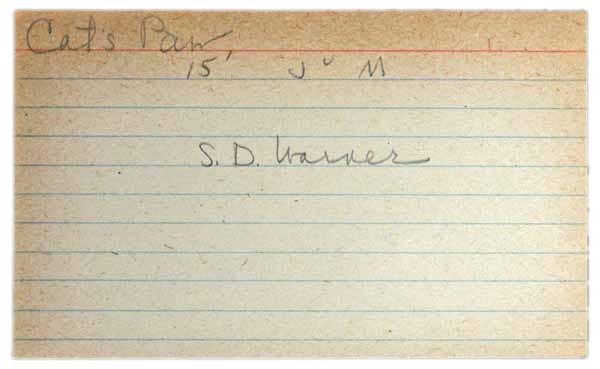 Cat's Paw,
15' J M
S. D. Warner